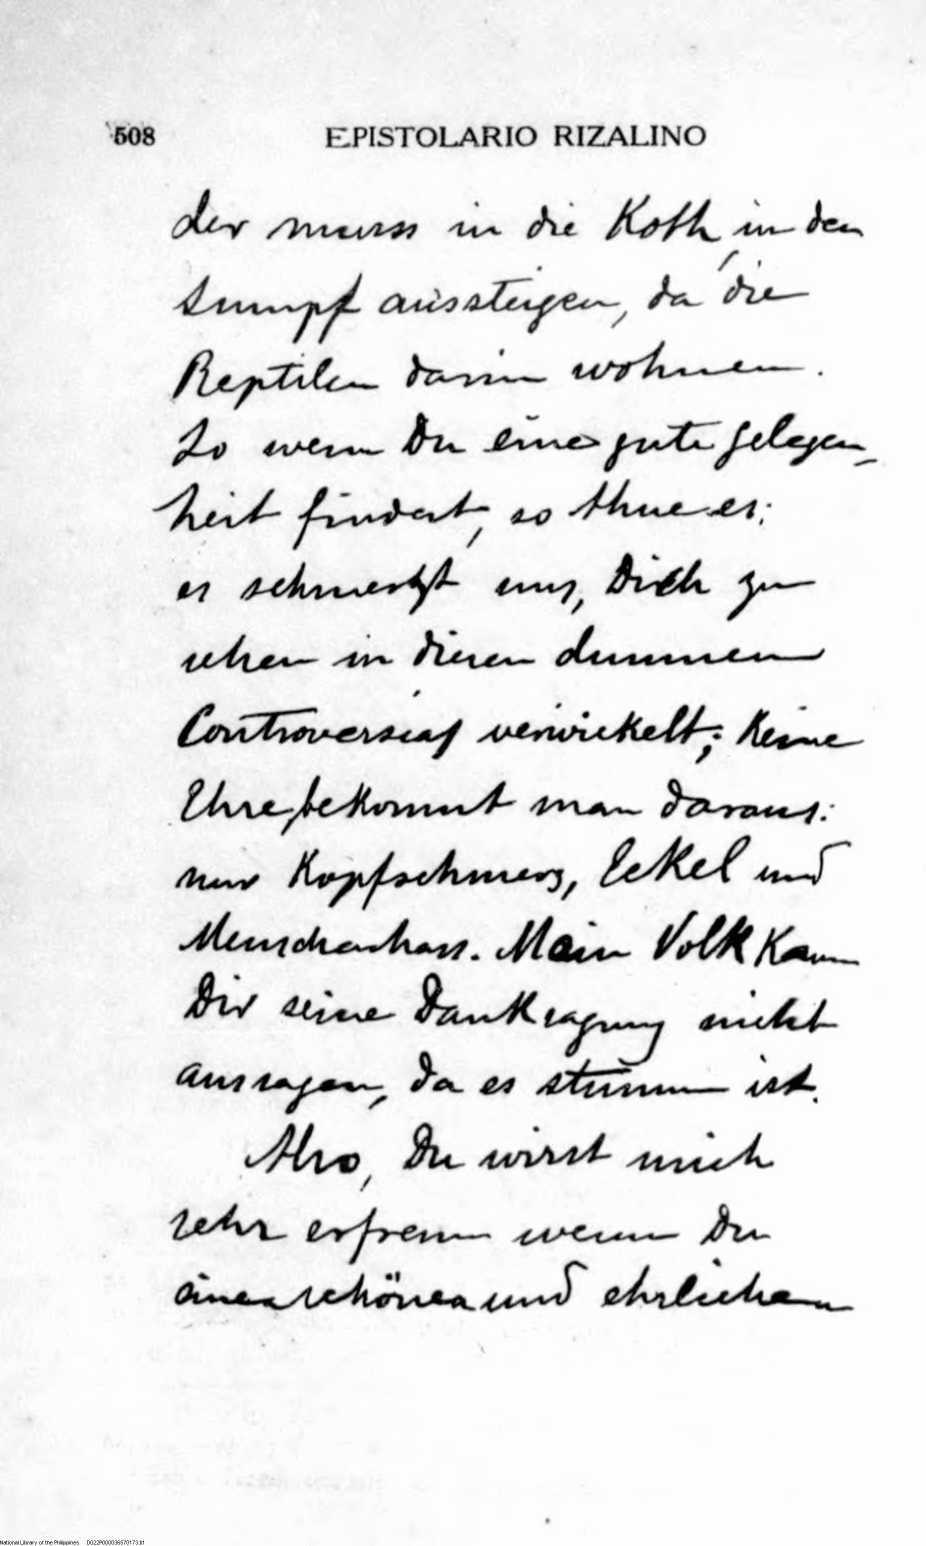 508 EPISTOLARIO RIZALINO
der muss in die Koth, in den
Sumpf aussteigen, da die
Reptilen darin wohnen.
So wenn Du eine gute gelegen-
heit findest, so thue es;
es schmerzt uns, Dich zu
sehen in diesen dummen
Controversias verwickelt; keine
Ehre bekommt man daraus:
nur Kopfschmerz, Eckel und
Menschenhass. Mein Volk kann
Dir seine Danksagung nicht
aussagen, da es stumm ist.
Also, Du wirst mich
sehr erfreun wenn Du
einen schönen und ehrlichen
National Library of the Philippines